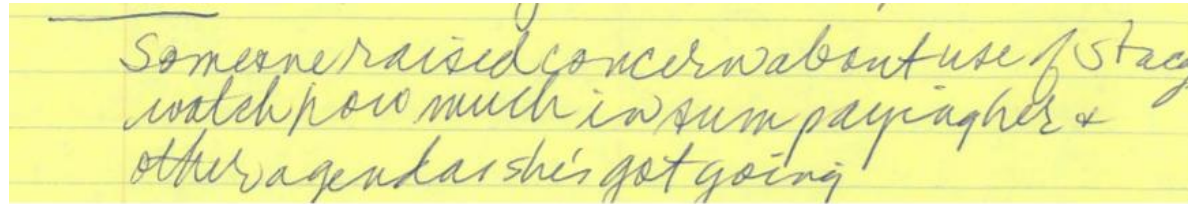 Someone raised concern about use of Stacy
watch how much in sum paying her &
other agendas she's got going